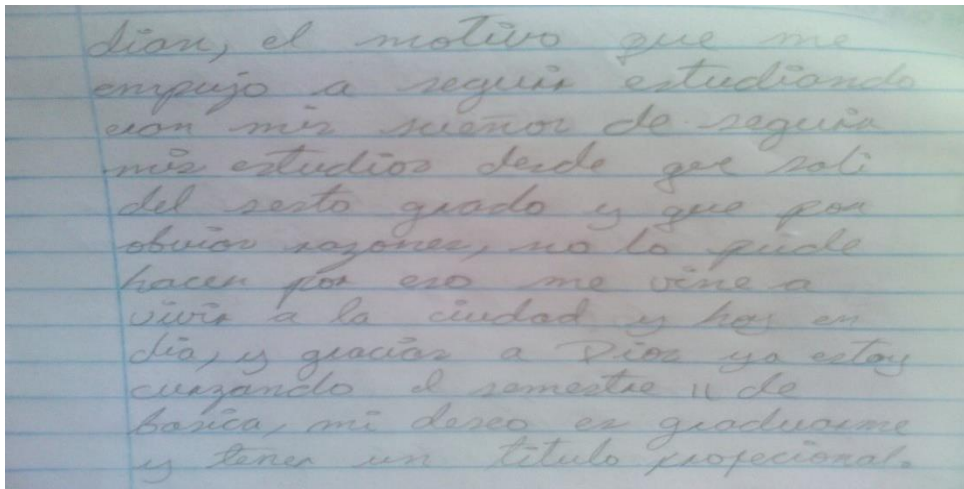 dian, el motivo que me
empujo a seguir estudiando
eran mis sueños de seguir
mis estudios desde que sali
del sesto grado y que por
obvias razones, no lo pude
hacer por eso me vine a
vivir a la ciudad y hoy en
dia, y gracias a Dios ya estoy
curzando el semestre 11 de
basica, mi deseo es graduarme
y tener un titulo profecional.